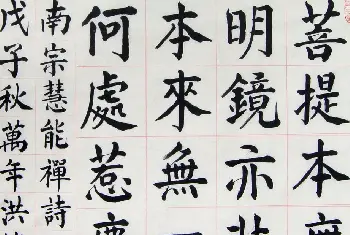 菩提本
明鏡亦
本來無
何處惹
南宗慧能禪詩
戊子秋萬年洪